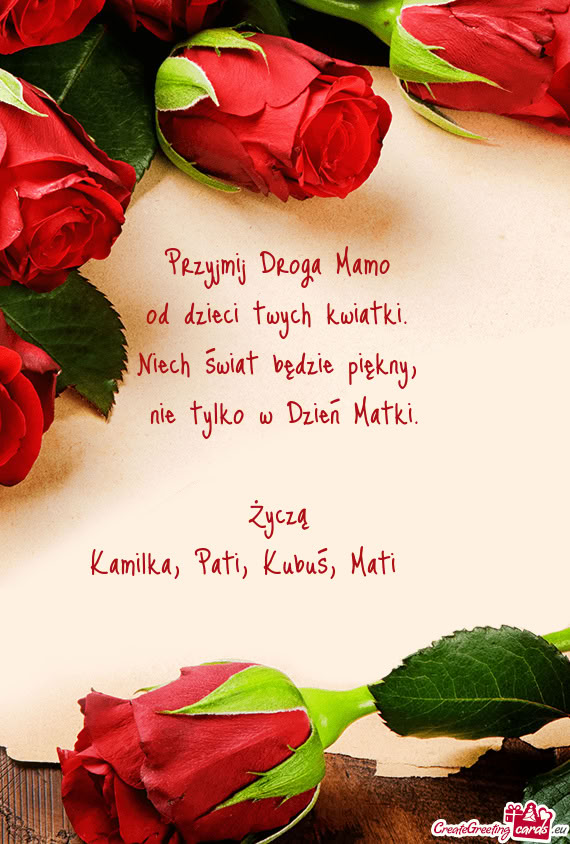 Przyjmij Droga Mamo
od dzieci twych kwiatki.
Niech świat będzie piękny,
nie tylko w Dzień Matki.
Życzą
Kamilka, Pati, Kubuś, Mati
CreateGreeting cards .eu